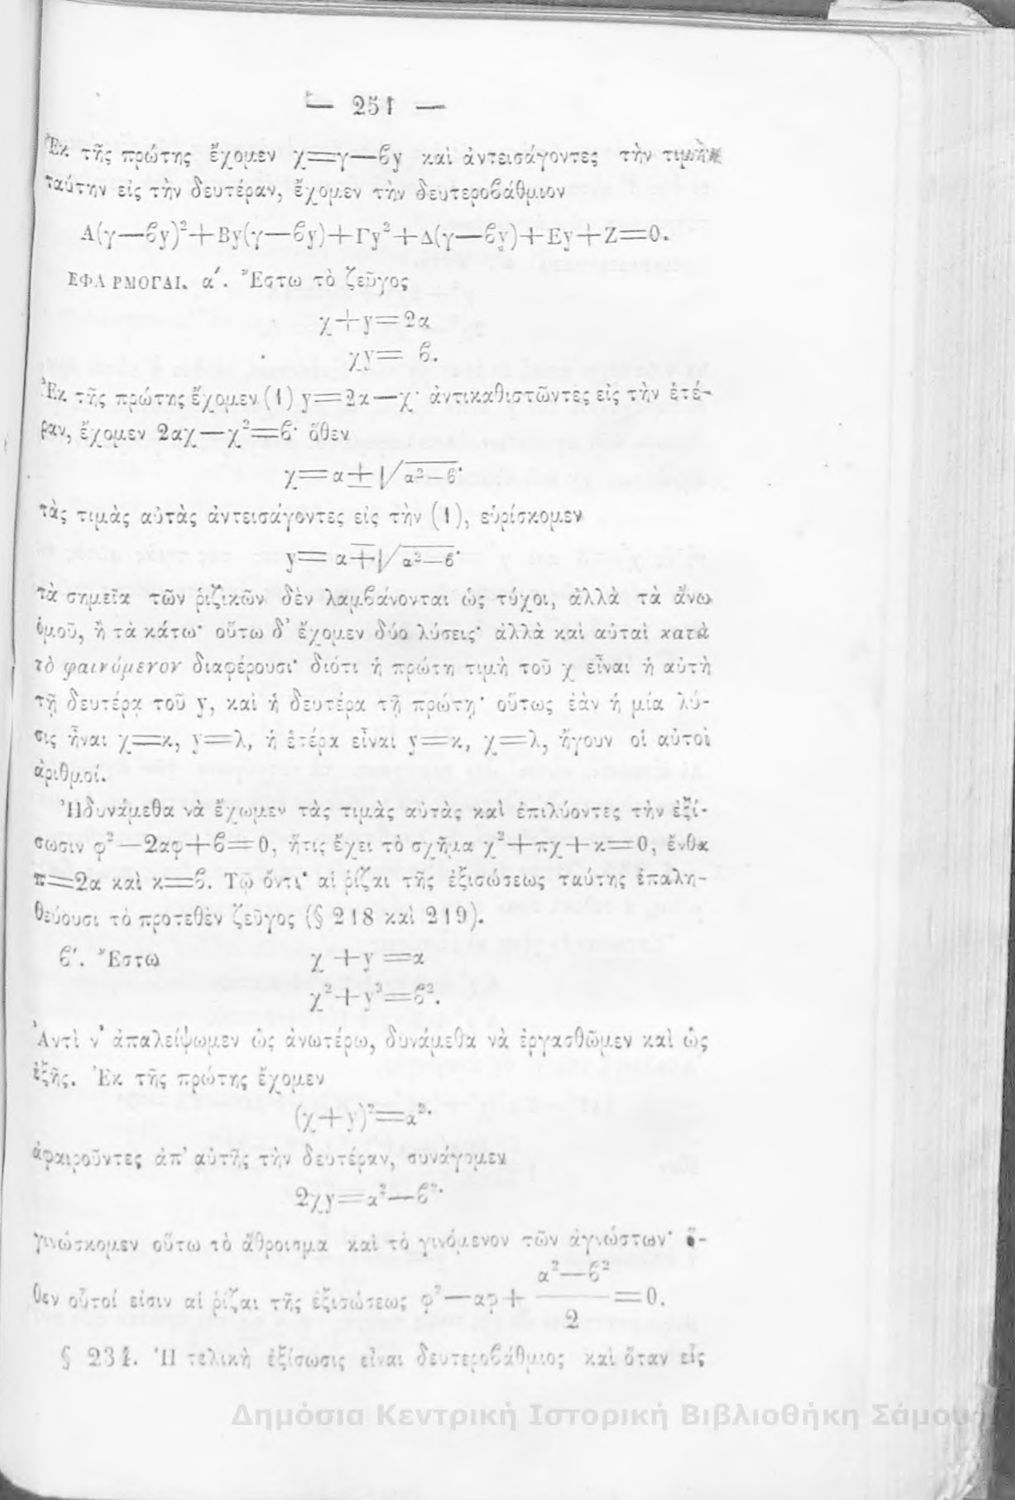 — 251 —
Ἐκ τῆς πρώτης ἔχομεν χ=γ—βy καὶ ἀντεισάγοντες τὴν τιμὴν
ταύτην εἰς τὴν δευτέραν, ἔχομεν τὴν δευτεροβάθμιον
Α(γ—βy)²+Βy(γ—βy)+Γy²+Δ(γ—βy)+Εy+Ζ=0.
ΕΦΑΡΜΟΓΑΙ. α΄. Ἔστω τὸ ζεῦγος
χ+y=2α
χy= β.
Ἐκ τῆς πρώτης ἔχομεν (1) y=2α—χ· ἀντικαθιστῶντες εἰς τὴν ἑτέ-
ραν, ἔχομεν 2αχ—χ²=β· ὅθεν
χ=α±√α²—β·
τὰς τιμὰς αὐτὰς ἀντεισάγοντες εἰς τὴν (1), εὑρίσκομεν
y=α∓√α²—β·
τὰ σημεῖα τῶν ῥιζικῶν δὲν λαμβάνονται ὡς τύχοι, ἀλλὰ τὰ ἄνω
ὁμοῦ, ἢ τὰ κάτω· οὕτω δ' ἔχομεν δύο λύσεις· ἀλλὰ καὶ αὐταὶ κατὰ
τὸ φαινόμενον διαφέρουσι· διότι ἡ πρώτη τιμὴ τοῦ χ εἶναι ἡ αὐτὴ
τῇ δευτέρᾳ τοῦ y, καὶ ἡ δευτέρα τῇ πρώτῃ· οὕτως ἐὰν ἡ μία λύ-
σις ἦναι χ=κ, y=λ, ἡ ἑτέρα εἶναι y=κ, χ=λ, ἤγουν οἱ αὐτοὶ
ἀριθμοί.
Ἠδυνάμεθα νὰ ἔχωμεν τὰς τιμὰς αὐτὰς καὶ ἐπιλύοντες τὴν ἐξί-
σωσιν φ²—2αφ+β=0, ἥτις ἔχει τὸ σχῆμα χ²+πχ+κ=0, ἔνθα
π=2α καὶ κ=β. Τῷ ὄντι· αἱ ῥίζαι τῆς ἐξισώσεως ταύτης ἐπαλη-
θεύουσι τὸ προτεθὲν ζεῦγος (§ 218 καὶ 219).
β΄. Ἔστω χ+y=α
χ²+y²=β².
Ἀντὶ ν' ἀπαλείψωμεν ὡς ἀνωτέρω, δυνάμεθα νὰ ἐργασθῶμεν καὶ ὡς
ἑξῆς. Ἐκ τῆς πρώτης ἔχομεν
(χ+y)²=α²·
ἀφαιροῦντες ἀπ' αὐτῆς τὴν δευτέραν, συνάγομεν
2χy=α²—β²·
γινώσκομεν οὕτω τὸ ἄθροισμα καὶ τὸ γινόμενον τῶν ἀγνώστων· ὅ-
θεν οὗτοί εἰσιν αἱ ῥίζαι τῆς ἐξισώσεως φ²—αφ+ α²—β² / 2 =0.
§ 234. Ἡ τελικὴ ἐξίσωσις εἶναι δευτεροβάθμιος καὶ ὅταν εἰς
Δημόσια Κεντρική Ιστορική Βιβλιοθήκη Σάμου